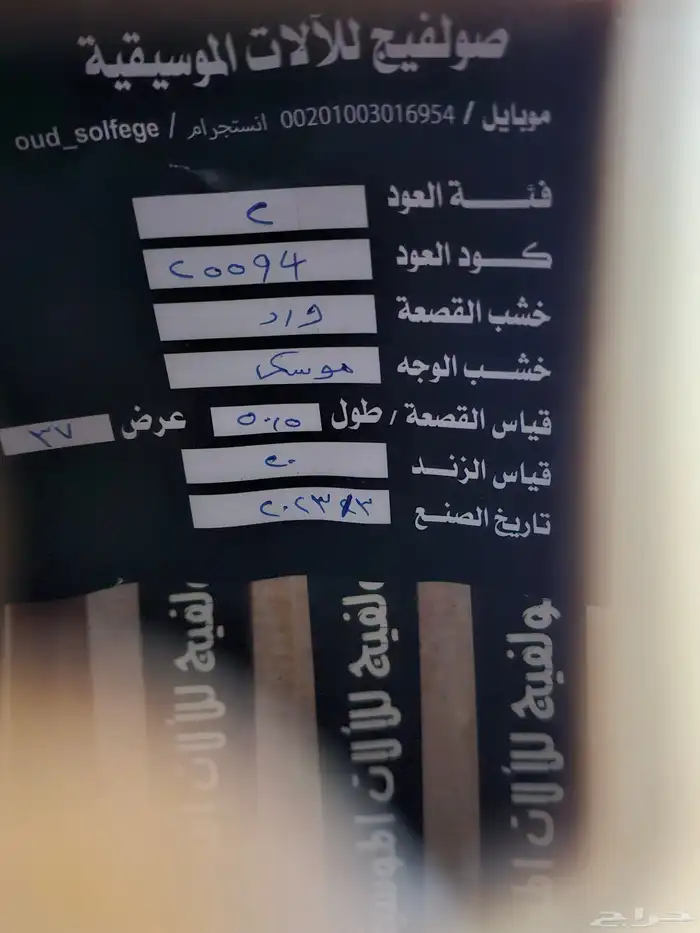 صولفيج للآلات الموسيقية
موبايل / 00201003016954 انستجرام / oud_solfege
فئة العود C
كود العود C0094
خشب القصعة ورد
خشب الوجه موسكى
قياس القصعة / طول عرض ٣٧
قياس الزند ٢٠
تاريخ الصنع ٢٠٢٣
ولفيج للآلات
ولفيج للآلات
ولفيج للآلات
حراج